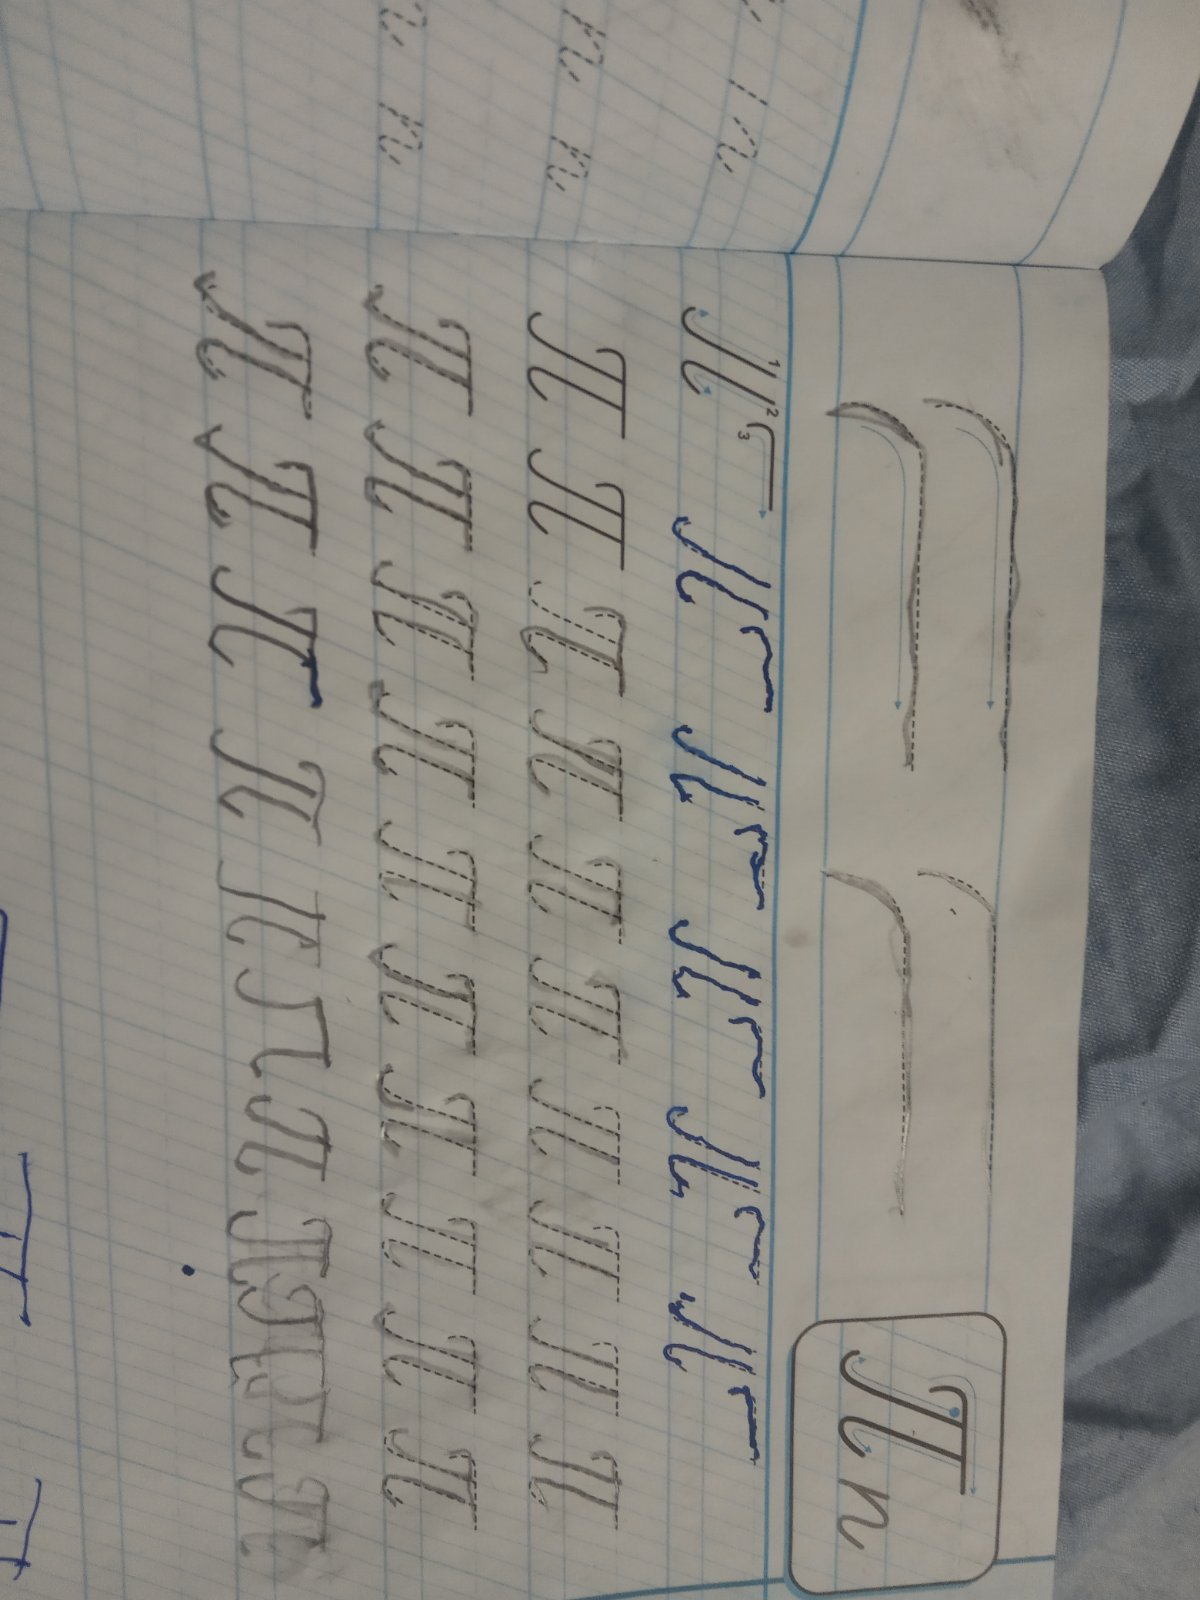 П п
1 2 3 П П П П П
П П П П П П П П П П
П П П П П П П П П П
П П П П П П П П П П П
п
п п
п п